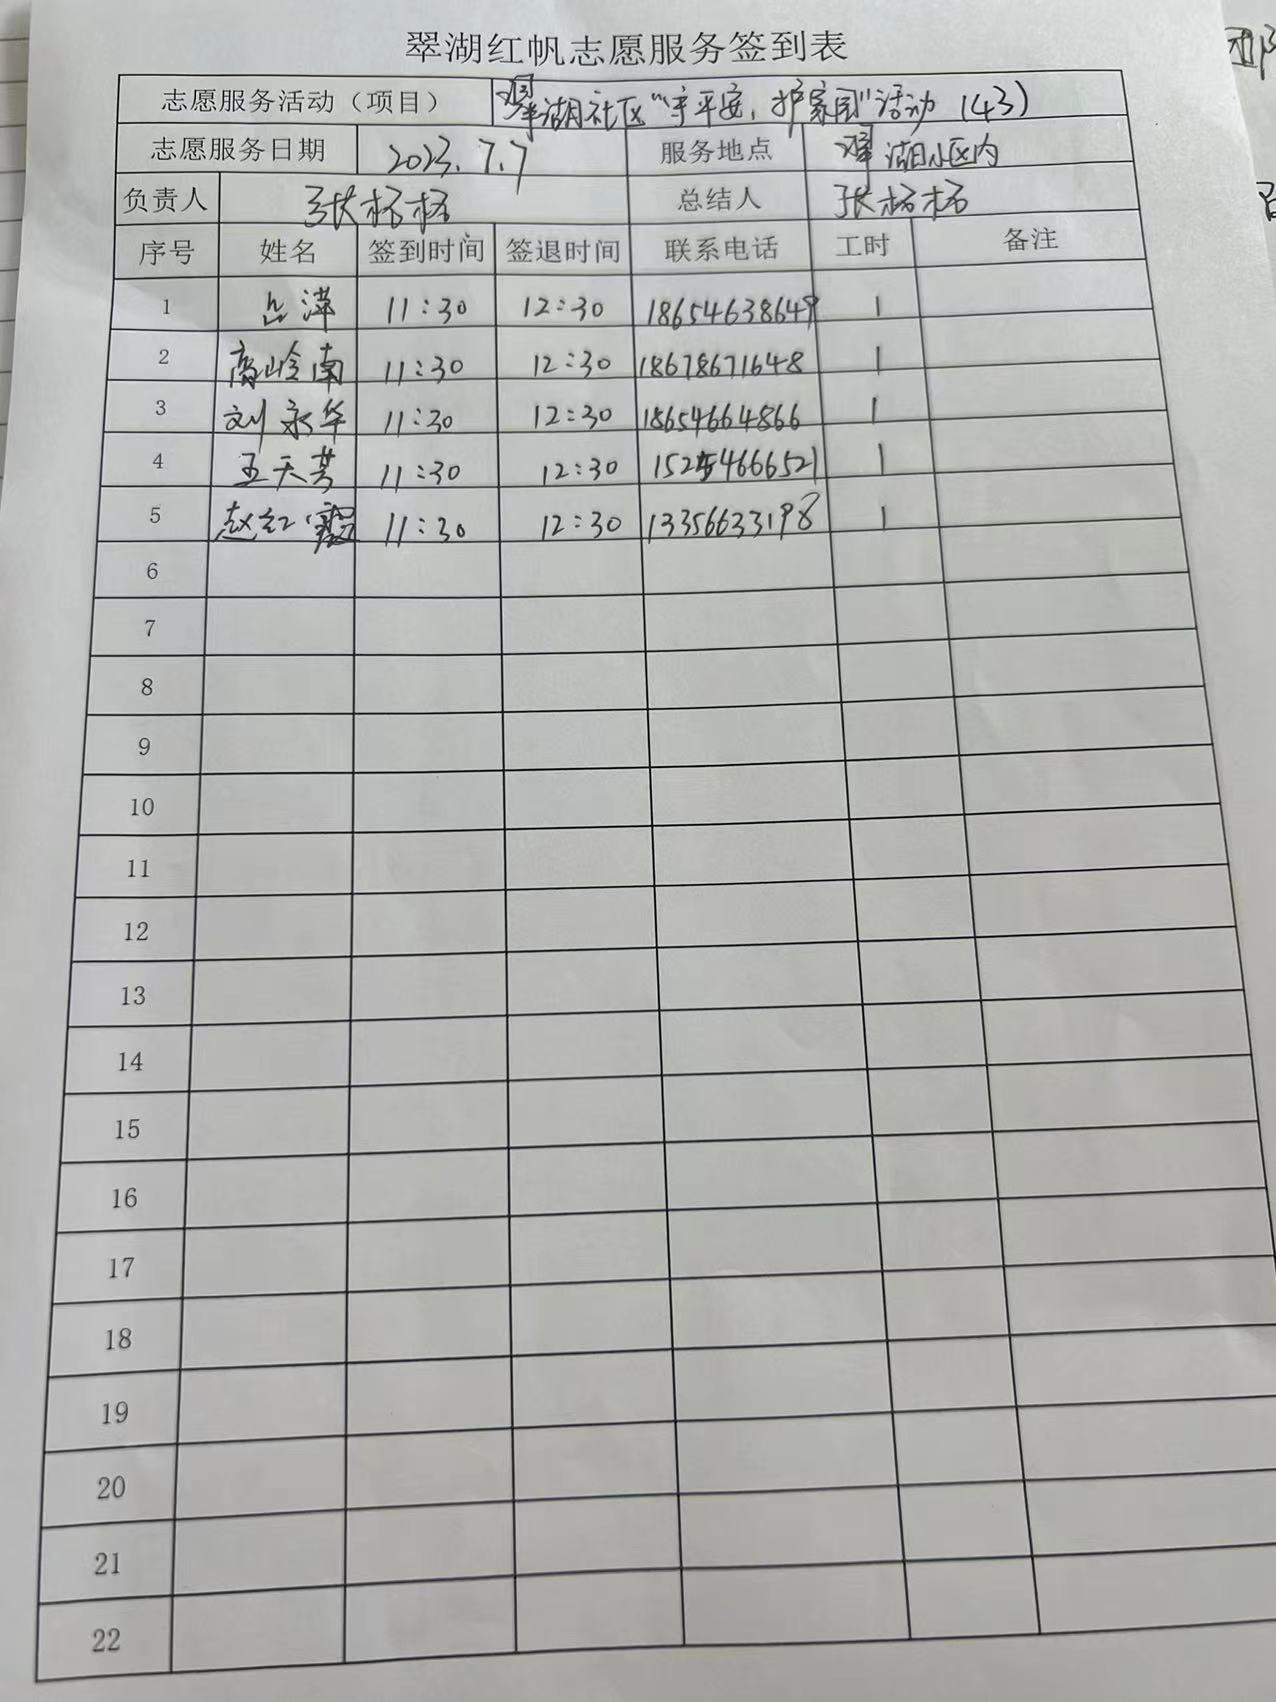 翠湖红帆志愿服务签到表
志愿服务活动（项目） 翠湖社区“守平安，护家园”活动（43）
志愿服务日期 2023.7.7 服务地点 翠湖小区内
负责人 张杨杨 总结人 张杨杨
序号 姓名 签到时间 签退时间 联系电话 工时 备注
1 吕萍 11:30 12:30 18654638649 1
2 高岭南 11:30 12:30 18678671648 1
3 刘永华 11:30 12:30 18654664866 1
4 王天芳 11:30 12:30 15254666521 1
5 赵红霞 11:30 12:30 13356633198 1
6
7
8
9
10
11
12
13
14
15
16
17
18
19
20
21
22